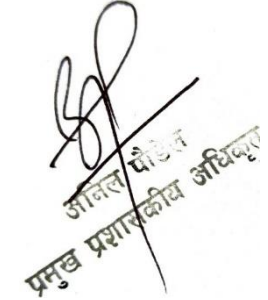 अनिल पौडेल
प्रमुख प्रशासकीय अधिकृत